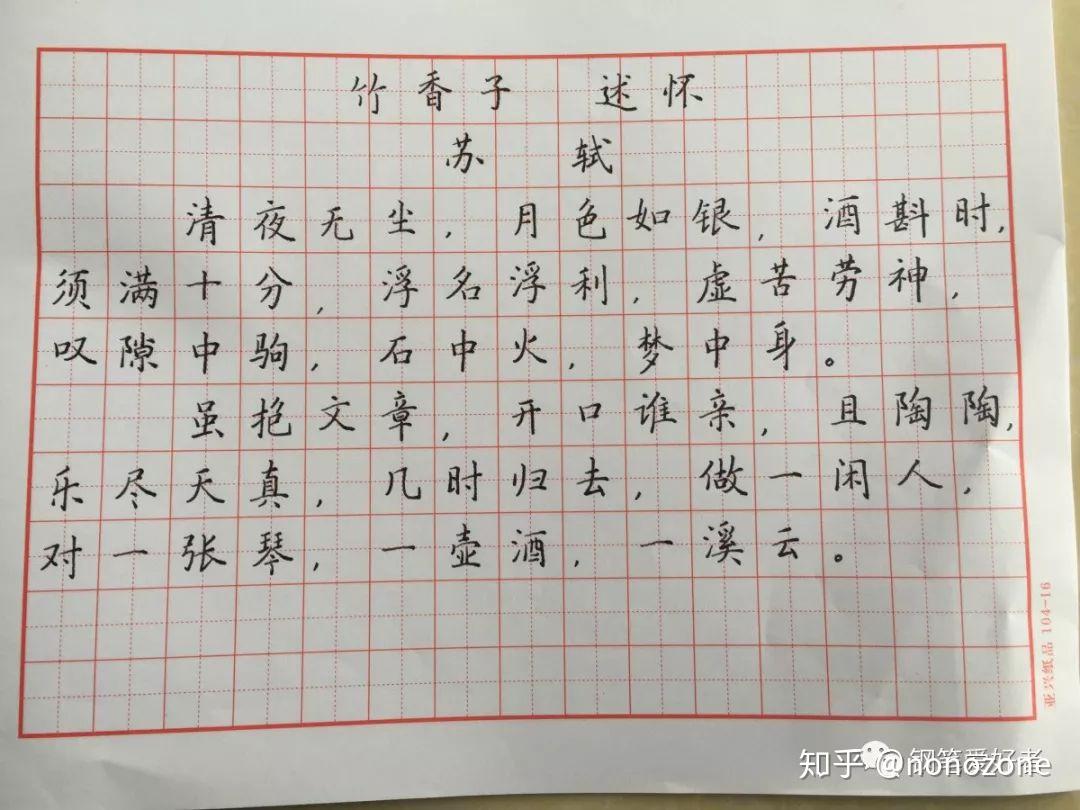 竹香子 述怀
苏 轼
清夜无尘，月色如银，酒斟时，
须满十分，浮名浮利，虚苦劳神，
叹隙中驹，石中火，梦中身。
虽抱文章，开口谁亲，且陶陶，
乐尽天真，几时归去，做一闲人，
对一张琴，一壶酒，一溪云。
亚兴纸品 104-16
钢笔爱好者
知乎 @nonozone